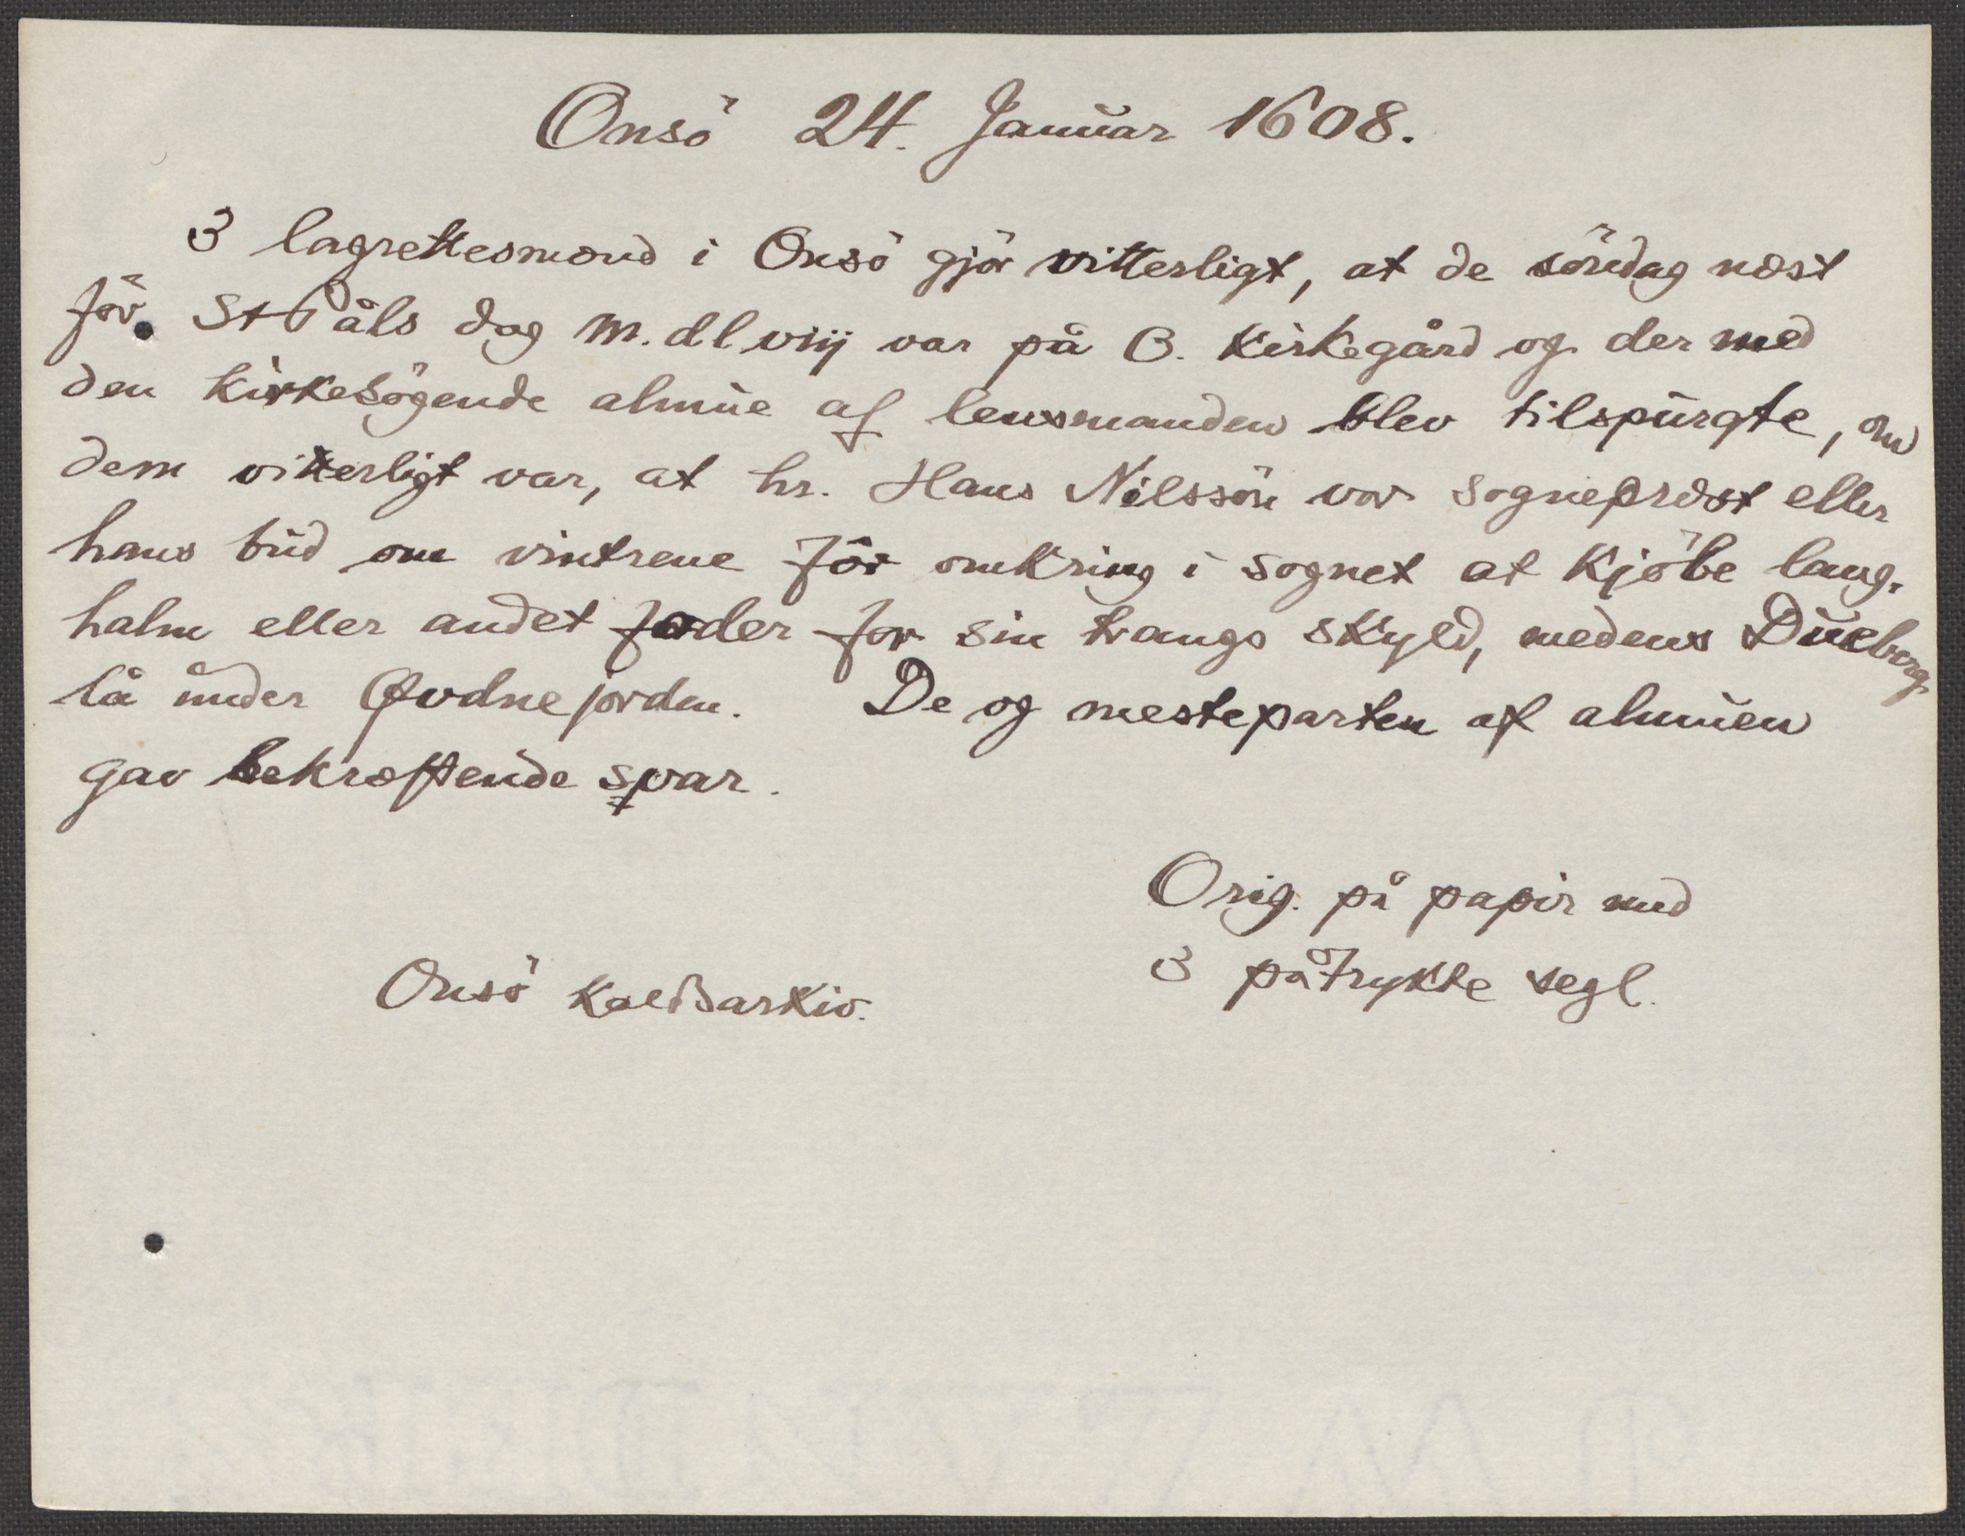 Onsö 24. Januar 1608.
3 lagrettesmænd i Onsö gjör vitterligt, at de söndag næst
för St Påls dag M.dl viij var på O. Kirkegård og der med
den Kirkesögende almue af lensmanden blev tilspurgte, om
dem vitterligt var, at hr. Hans Nilssön vor sogneprest eller
hans bud om vintrene för omkring i sognet at Kjöbe lang-
halm eller andet foder for sin trangs skyld, medens Dueborg
lå under Ødnejorden. De og mesteparten af almuen
gav bekræftende svar.
Orig. på papir med
3 påtrykte segl.
Onsö Kaldsarkiv.